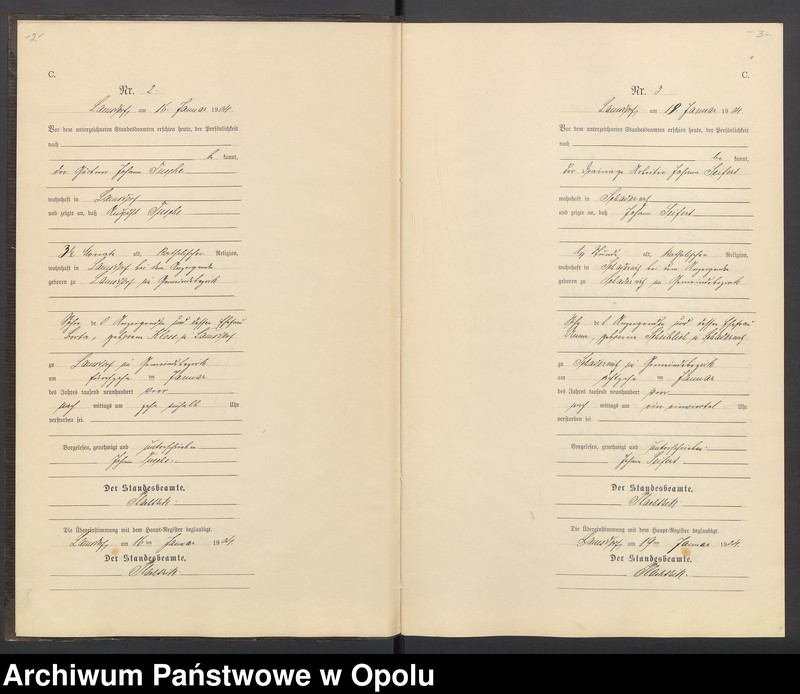 -2-
C.
Nr. 2
Lamsdorf, am 16. Januar 1904.
Vor dem unterzeichneten Standesbeamten erschien heute, der Persönlichkeit
nach
be kannt,
der Gärtner Johann
wohnhaft in Lamsdorf
und zeigte an, daß August
3½ Monate alt, katholischer Religion,
wohnhaft in Lamsdorf bei dem Anzeigenden
geboren zu Lamsdorf im Gemeindebezirk
Sohn des Anzeigenden und dessen Ehefrau
geborene Klose, zu Lamsdorf
zu Lamsdorf im Gemeindebezirk
am fünfzehn ten Januar
des Jahres tausend neunhundert vier
nach mittags um zehn einhalb Uhr
verstorben sei.
Vorgelesen, genehmigt und unterschrieben
Johann
Der Standesbeamte.
Die Übereinstimmung mit dem Haupt-Register beglaubigt.
Lamsdorf, am 16ten Januar 1904.
Der Standesbeamte.
-3-
C.
Nr. 3
Lamsdorf, am 19. Januar 1904.
Vor dem unterzeichneten Standesbeamten erschien heute, der Persönlichkeit
nach
be kannt,
der Drainage Arbeiter Johann Seifert
wohnhaft in
und zeigte an, daß Johann Seifert
Stunde alt, katholischer Religion,
wohnhaft in bei dem Anzeigenden
geboren zu im Gemeindebezirk
Sohn des Anzeigenden und dessen Ehefrau
geborene
zu im Gemeindebezirk
am ten Januar
des Jahres tausend neunhundert vier
nach mittags um ein einviertel Uhr
verstorben sei.
Vorgelesen, genehmigt und unterschrieben.
Johann Seifert
Der Standesbeamte.
Die Übereinstimmung mit dem Haupt-Register beglaubigt.
Lamsdorf, am 19ten Januar 1904.
Der Standesbeamte.
Archiwum Państwowe w Opolu